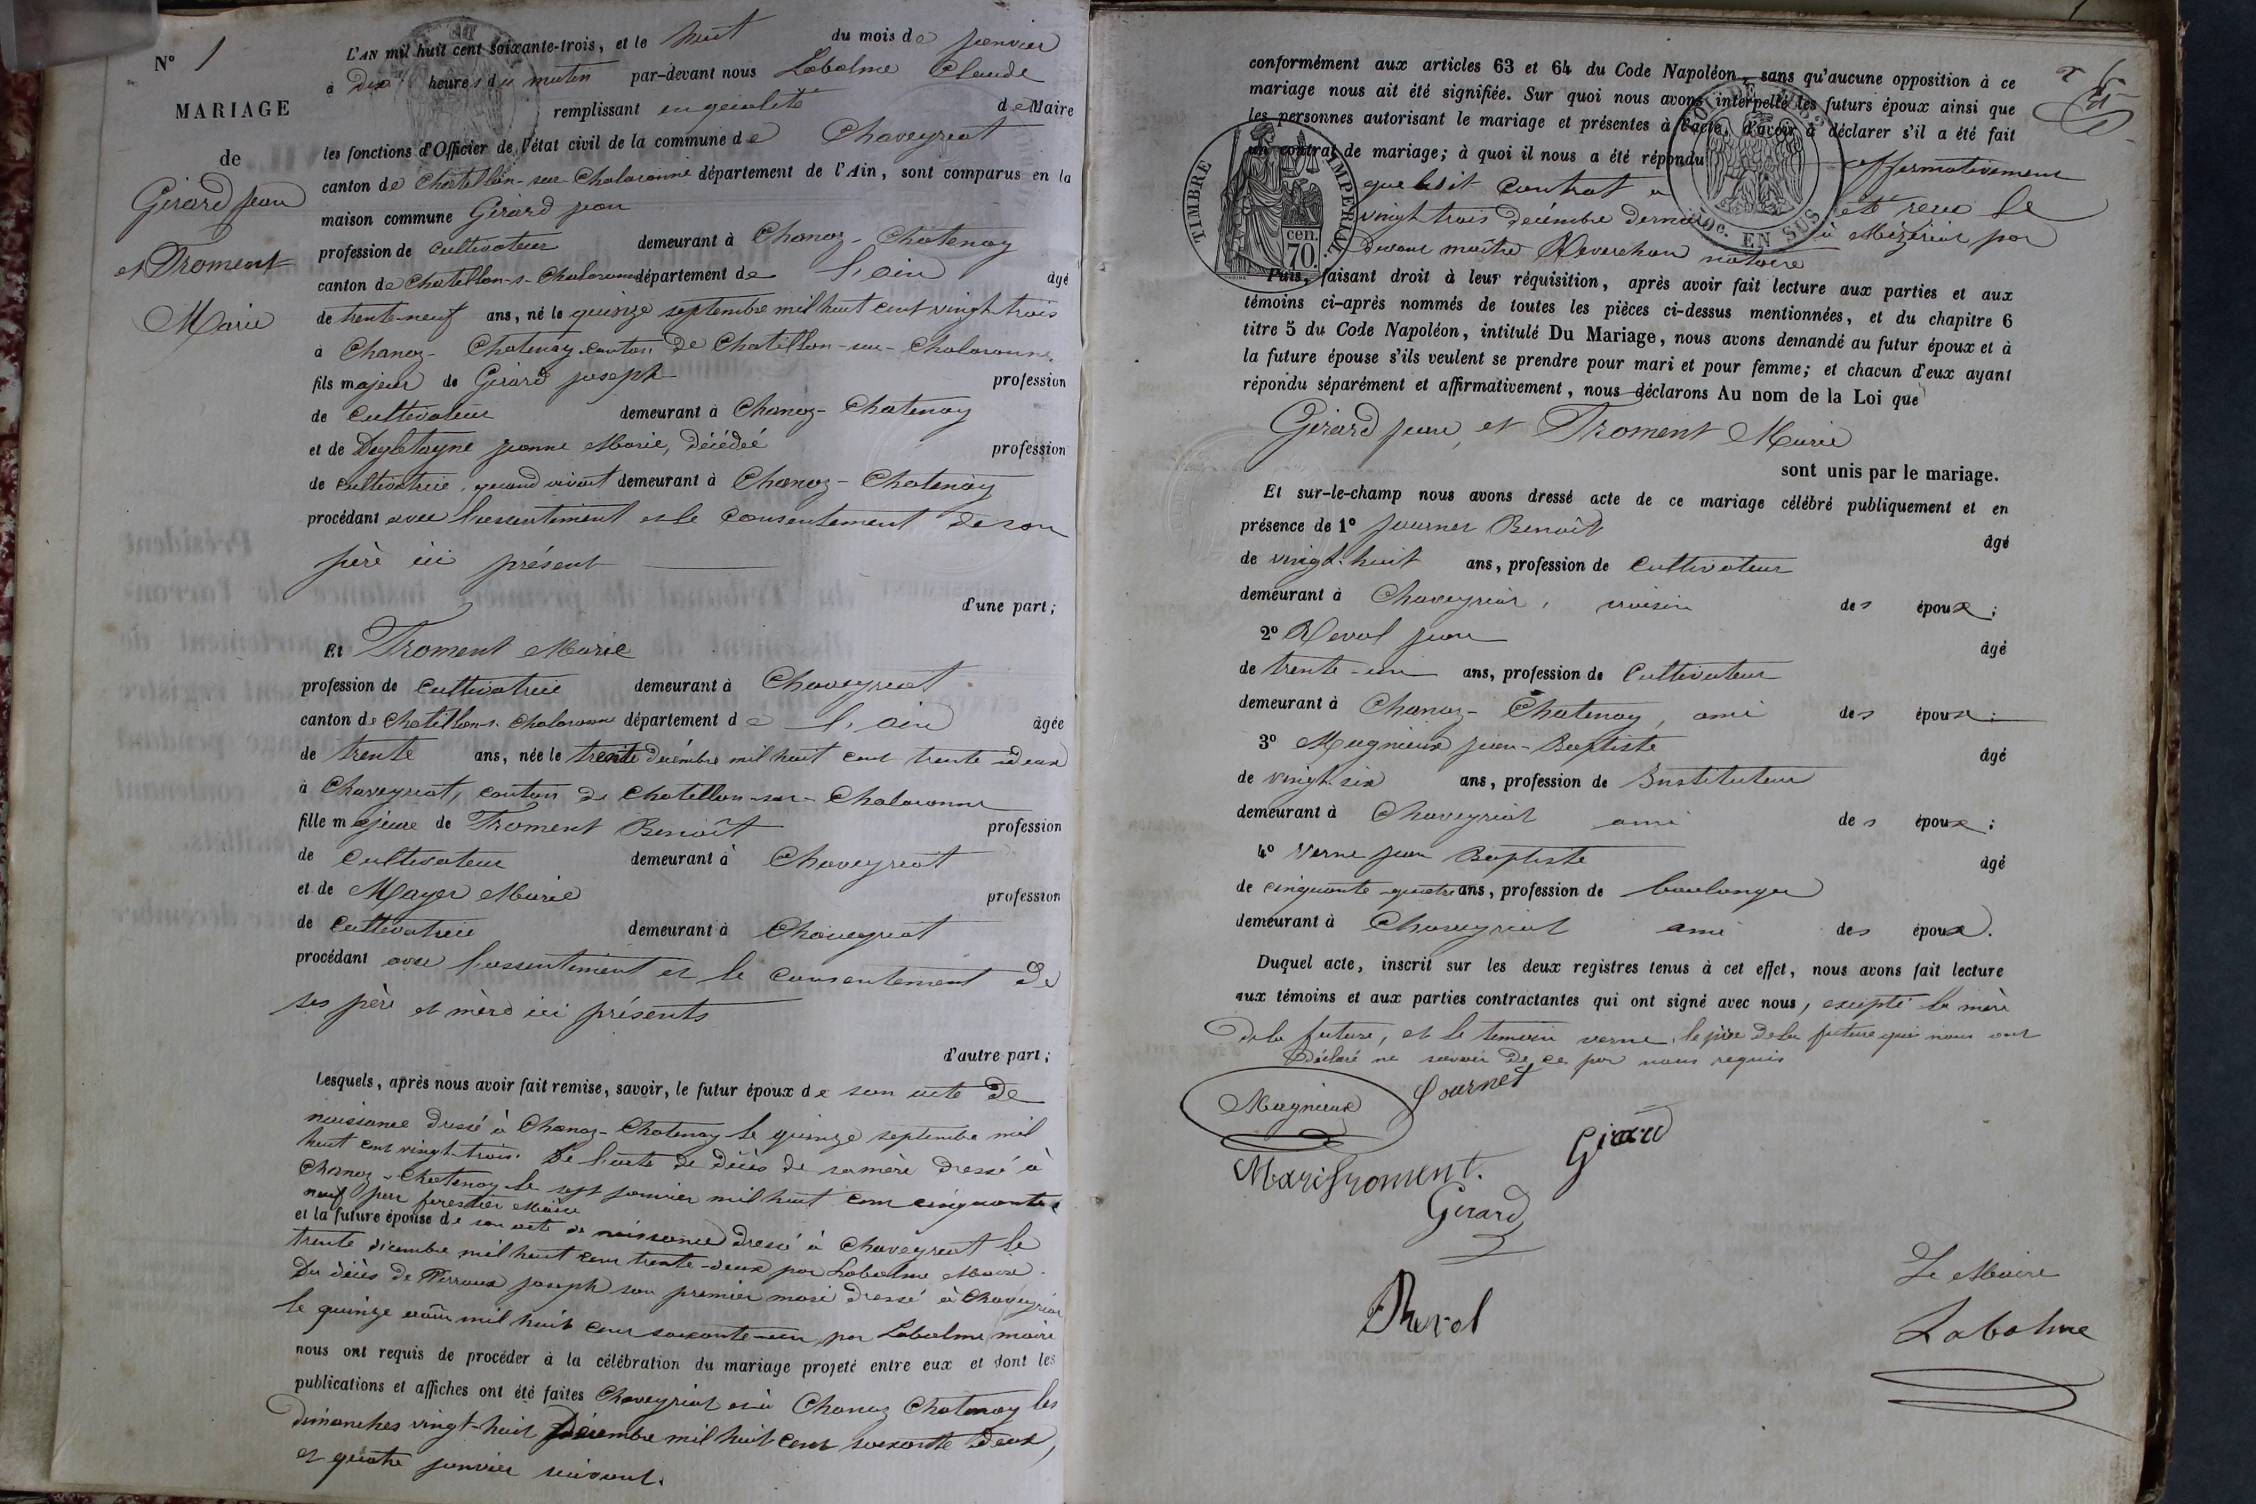 N° 1
MARIAGE
de
Girard Jean
et Froment
Marie
L'AN mil huit cent soixante-trois, et le huit du mois de janvier
à dix heures du matin par-devant nous Labalme Claude
remplissant en qualité de Maire
les fonctions d'Officier de l'état civil de la commune de Chaveyriat
canton de Chatillon-sur-Chalaronne département de l'Ain, sont comparus en la
maison commune Girard jean
profession de cultivateur demeurant à Chanoz-Chatenay
canton de Chatillon-s-Chalaronne département de l'ain âgé
de trente-neuf ans, né le quinze septembre mil huit cent vingt trois
à Chanoz-Chatenay canton de Chatillon-sur-Chalaronne
fils majeur de Girard joseph profession
de cultivateur demeurant à Chanoz-Chatenay
et de jeanne Marie, décédée profession
de cultivatrice, quand vivait demeurant à Chanoz-Chatenay
procédant avec l'assentiment et le consentement de son
père ici présent
d'une part;
Et Froment Marie
profession de cultivatrice demeurant à Chaveyriat
canton de Chatillon-s-Chalaronne département de l'ain âgée
de trente ans, née le trente décembre mil huit cent trente-deux
à Chaveyriat, canton de Chatillon-sur-Chalaronne
fille majeure de Froment Benoît profession
de cultivateur demeurant à Chaveyriat
et de Mayer Marie profession
de cultivatrice demeurant à Chaveyriat
procédant avec l'assentiment et le consentement de
ses père et mère ici présents
d'autre part;
Lesquels, après nous avoir fait remise, savoir, le futur époux de son acte de
naissance dressé à Chanoz-Chatenay le quinze septembre mil
huit cent vingt-trois. De l'acte de décès de sa mère dressé à
Chanoz-Chatenay le sept janvier mil huit cent cinquante
neuf par forestier Maire
et la future épouse de son acte de naissance dressé à Chaveyriat le
trente décembre mil huit cent trente-deux par Labalme Maire.
Du décès de Perraud joseph son premier mari dressé à Chaveyriat
le quinze août mil huit cent soixante-un par Labalme maire
nous ont requis de procéder à la célébration du mariage projeté entre eux et dont les
publications et affiches ont été faites Chaveyriat et à Chanoz Chatenay les
dimanches vingt-huit Décembre mil huit cent soixante deux,
et quatre janvier suivant.
conformément aux articles 63 et 64 du Code Napoléon, sans qu'aucune opposition à ce
mariage nous ait été signifiée. Sur quoi nous avons interpellé les futurs époux ainsi que
les personnes autorisant le mariage et présentes à l'acte, d'avoir à déclarer s'il a été fait
un contrat de mariage; à quoi il nous a été répondu affirmativement
que ledit contrat a été recu le
vingt trois décembre dernier à Mézériat par
devant maître Reverchon notaire
TIMBRE IMPERIAL
70 cen.
EN SUS
Puis, faisant droit à leur réquisition, après avoir fait lecture aux parties et aux
témoins ci-après nommés de toutes les pièces ci-dessus mentionnées, et du chapitre 6
titre 5 du Code Napoléon, intitulé Du Mariage, nous avons demandé au futur époux et à
la future épouse s'ils veulent se prendre pour mari et pour femme; et chacun d'eux ayant
répondu séparément et affirmativement, nous déclarons Au nom de la Loi que
Girard jean, et Froment Marie
sont unis par le mariage.
Et sur-le-champ nous avons dressé acte de ce mariage célébré publiquement et en
présence de 1° Journet Benoît âgé
de vingt-huit ans, profession de cultivateur
demeurant à Chaveyriat, voisin des époux;
2° Revol jean âgé
de trente-un ans, profession de Cultivateur
demeurant à Chanoz-Chatenay, ami des époux;
3° Magnieux jean-Baptiste âgé
de vingt-six ans, profession de Instituteur
demeurant à Chaveyriat ami des époux;
4° Verne jean Baptiste âgé
de cinquante-quatre ans, profession de boulanger
demeurant à Chaveyriat ami des époux.
Duquel acte, inscrit sur les deux registres tenus à cet effet, nous avons fait lecture
aux témoins et aux parties contractantes qui ont signé avec nous, excepté la mère
de la future, et le temoin verne, le père de la future qui nous ont
déclaré ne savoir de ce par nous requis
Magnieux Journet
Girard
Marie froment.
Girard
Revol
Le Maire
Labalme